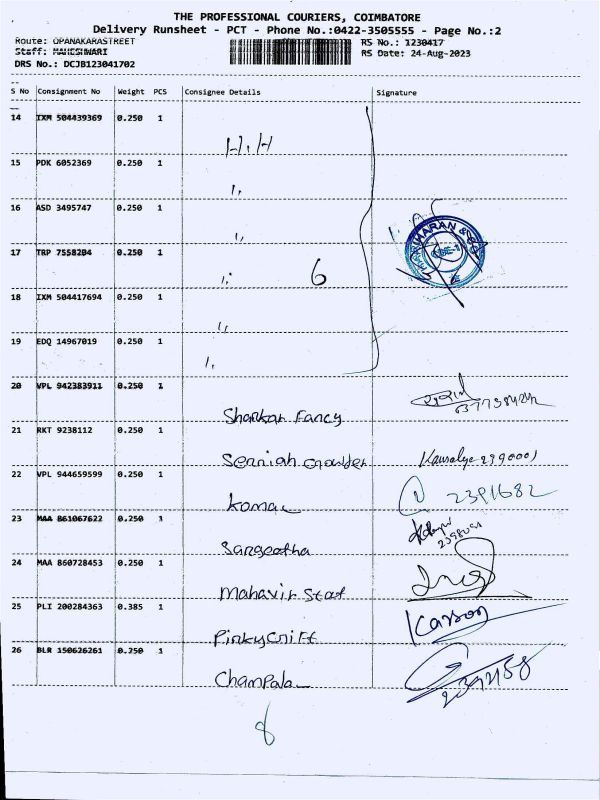 THE PROFESSIONAL COURIERS, COIMBATORE
Delivery Runsheet - PCT - Phone No.:0422-3505555 - Page No.:2
Route: OPANAKARASTREET
RS No.: 1230417
Staff: MAHESHWARI
RS Date: 24-Aug-2023
DRS No.: DCJB123041702
S No Consignment No Weight PCS Consignee Details Signature
14 IXM 504439369 0.250 1
H.H
15 PDK 6052369 0.250 1
16 ASD 3495747 0.250 1
17 TRP 7558204 0.250 1
6
18 IXM 504417694 0.250 1
19 EDQ 14967019 0.250 1
20 VPL 942383911 0.250 1
Shankar Fancy
21 RKT 9238112 0.250 1
Kausalya 2390001
22 VPL 944659599 0.250 1
2391682
23 MAA 861067622 0.250 1
Sangeetha
24 MAA 860728453 0.250 1
Mahavir
25 PLI 200284363 0.385 1
26 BLR 150626261 0.250 1
8